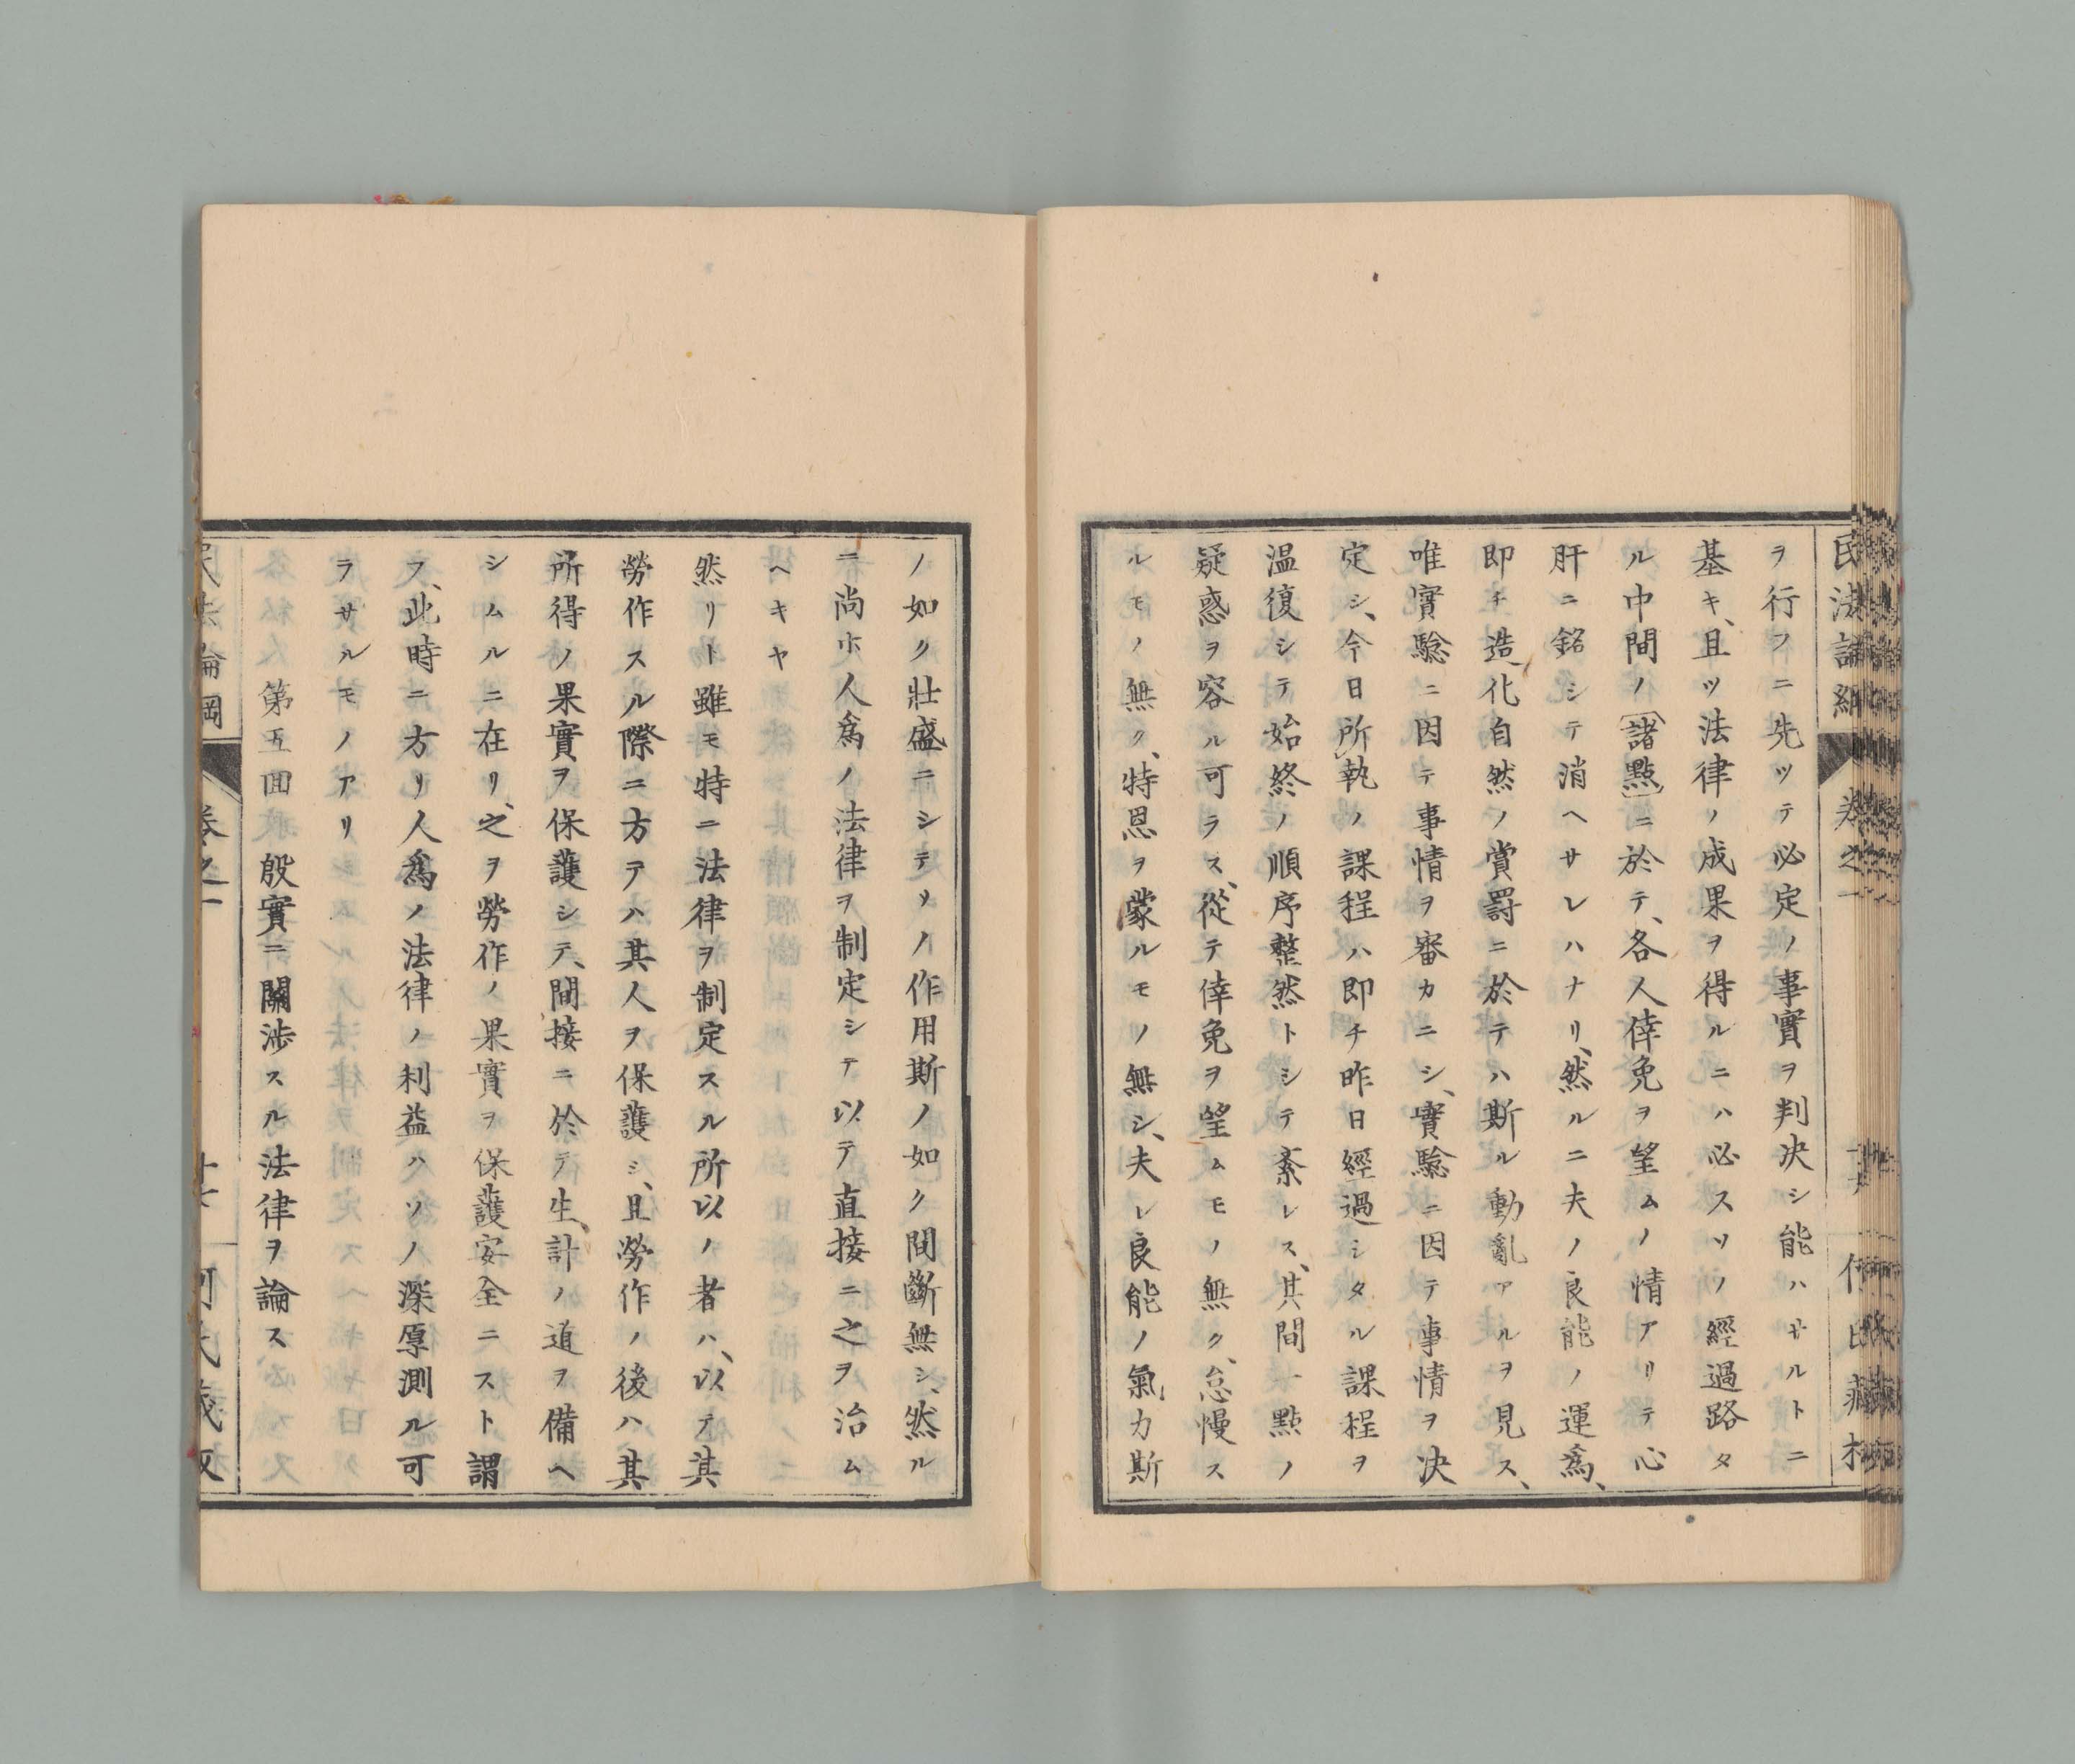 ヲ行フニ先ツテ必定ノ事實ヲ判決シ能ハサルトニ
基キ、且ツ法律ノ成果ヲ得ルニハ必スソノ經過路タ
ル中間ノ諸點ニ於テ、各人倖免ヲ望ムノ情アリテ心
肝ニ銘シテ消ヘサレハナリ、然ルニ夫ノ良能ノ運爲、
即チ造化自然ノ賞罰ニ於テハ斯ル動亂アルヲ見ス、
唯實驗ニ因テ事情ヲ審カニシ、實驗ニ因テ事情ヲ決
定シ、今日所執ノ課程ハ即チ昨日經過シタル課程ヲ
温復シテ始終ノ順序整然トシテ紊レス、其間一點ノ
疑惑ヲ容ル可ラス、從テ倖免ヲ望ムモノ無ク、怠慢ス
ルモノ無ク、特恩ヲ蒙ルモノ無シ、夫レ良能ノ氣力斯
ノ如ク壯盛ニシテソノ作用斯ノ如ク間斷無シ、然ル
ニ尚ホ人爲ノ法律ヲ制定シテ以テ直接ニ之ヲ治ム
ヘキヤ
然リト雖モ特ニ法律ヲ制定スル所以ノ者ハ、以テ其
勞作スル際ニ方テハ其人ヲ保護シ、且勞作ノ後ハ其
所得ノ果實ヲ保護シテ、間接ニ於テ生計ノ道ヲ備ヘ
シムルニ在リ、之ヲ勞作ノ果實ヲ保護安全ニスト謂
フ、此時ニ方リ人爲ノ法律ノ利益ハソノ深厚測ル可
ラサルモノアリ
第五囬 殷實ニ關涉スル法律ヲ論ス
民法論綱 卷之一 十七 何氏藏版